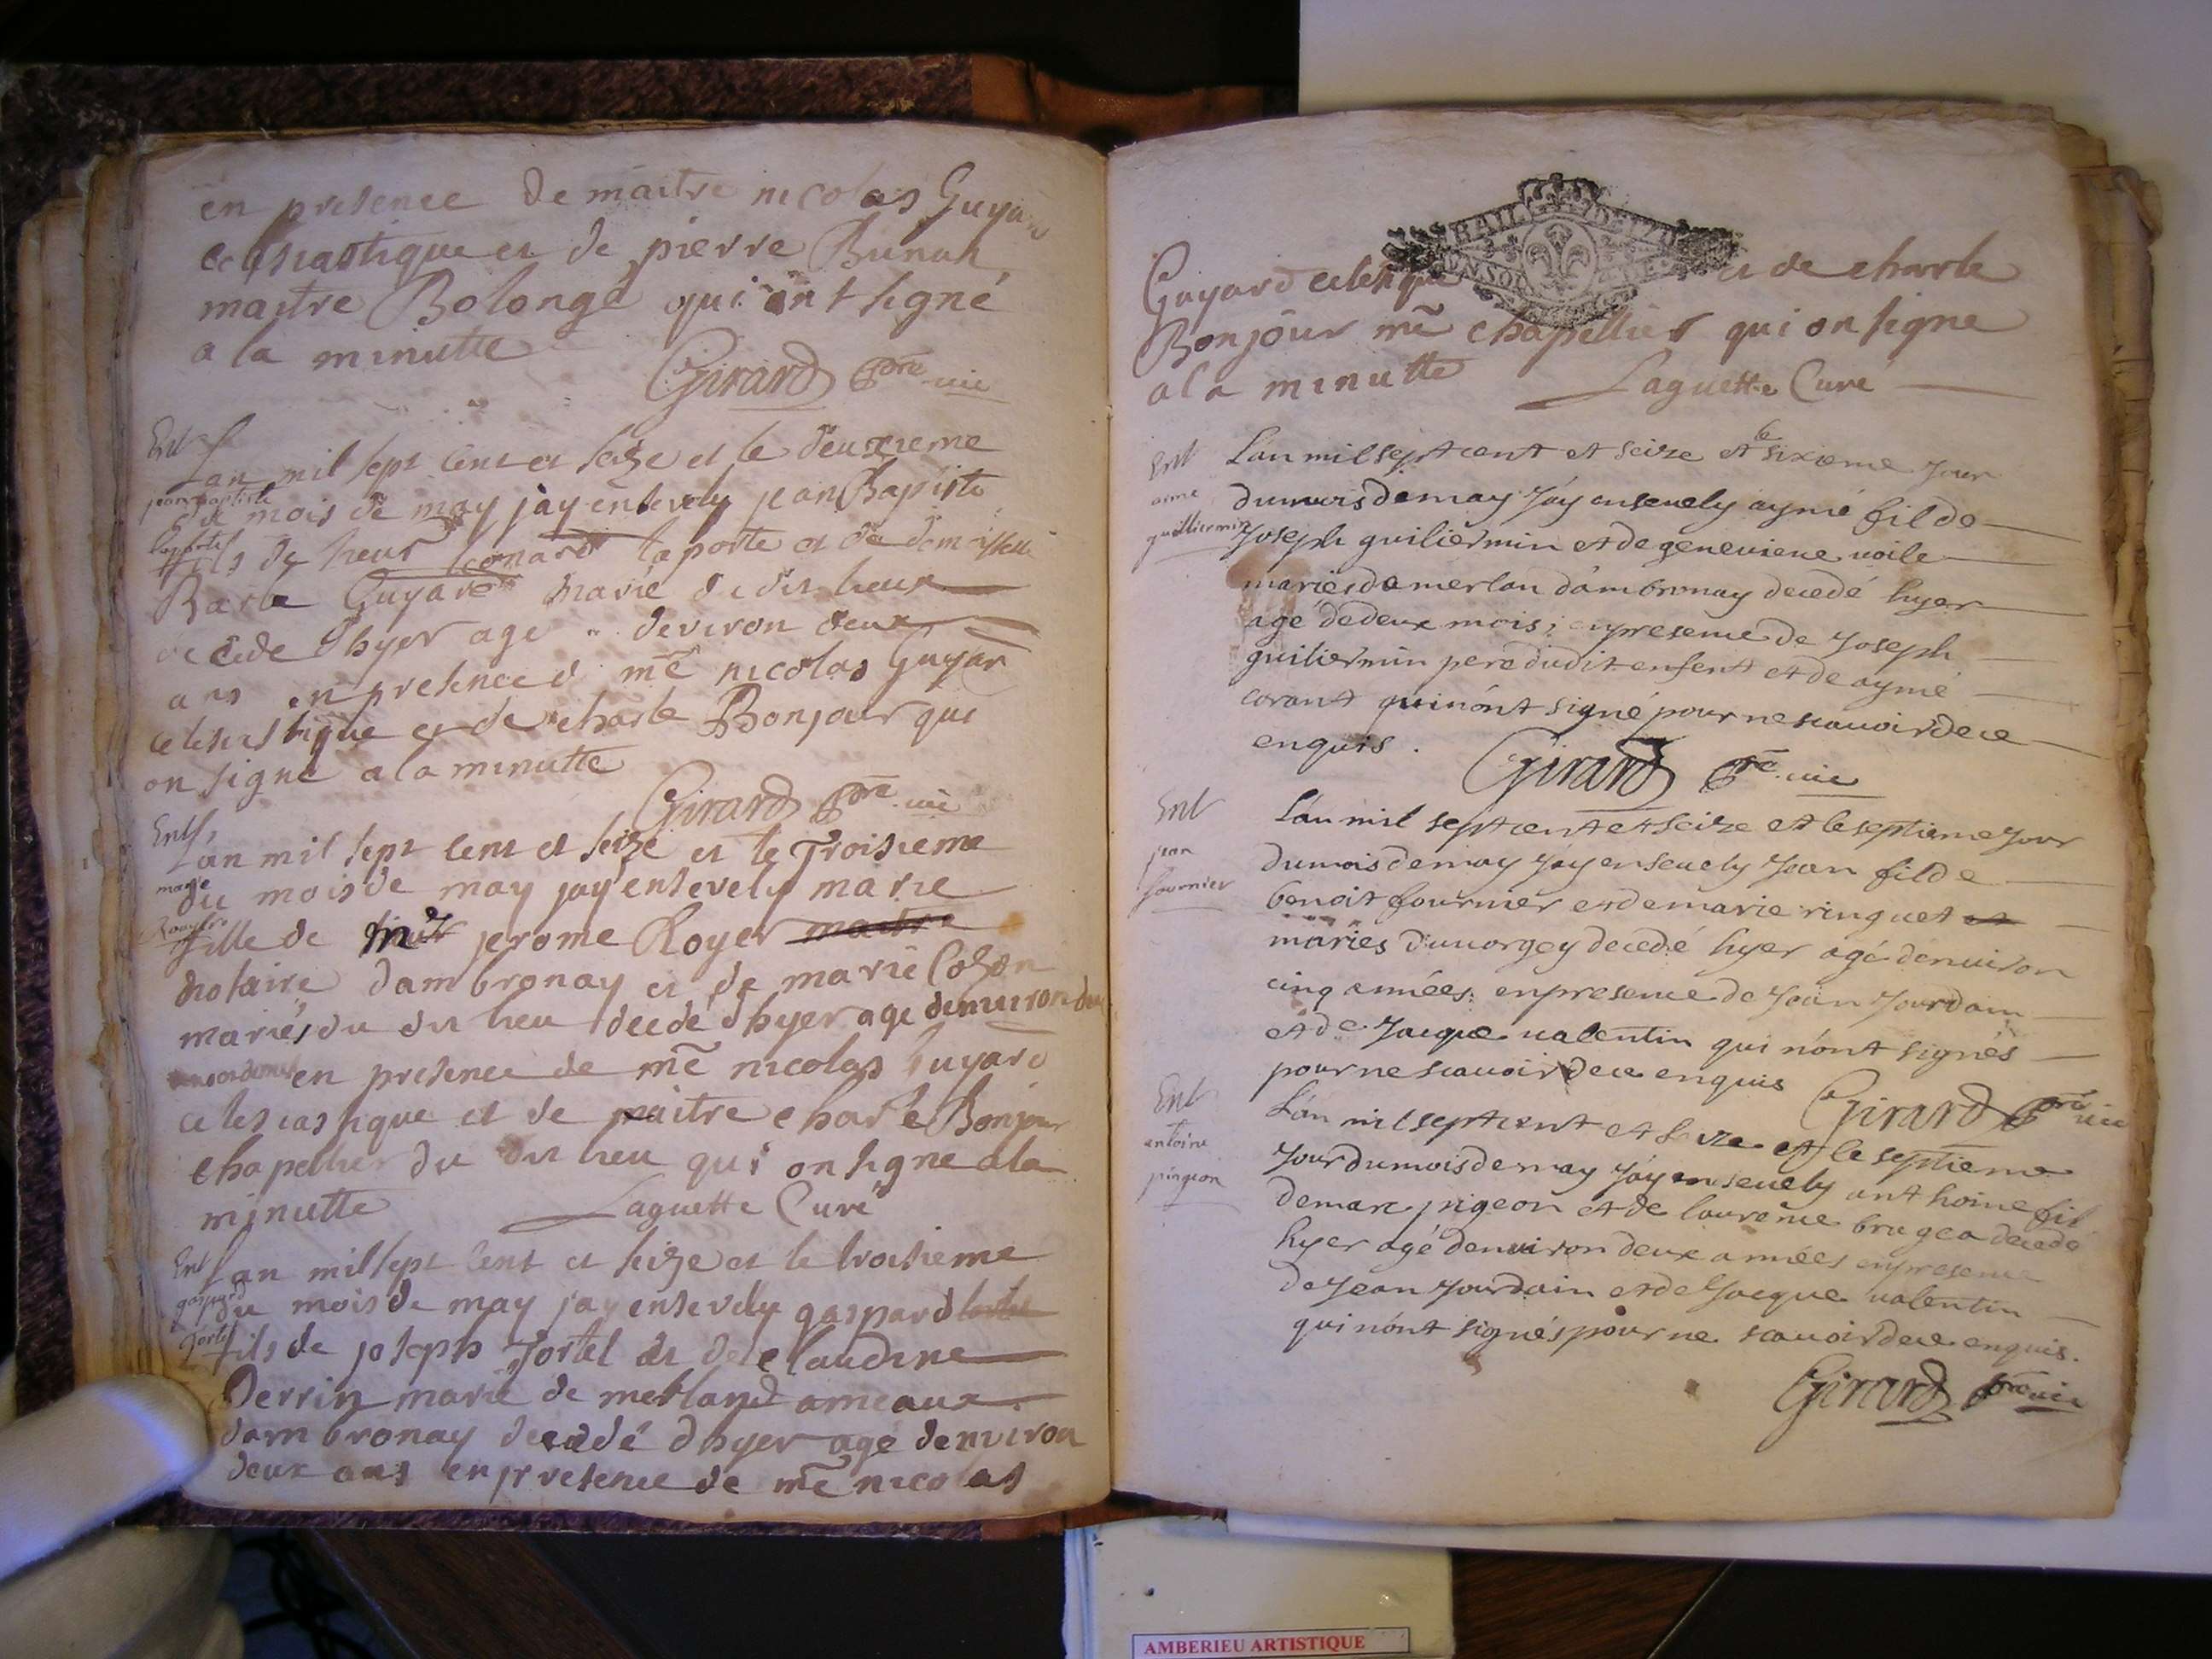 en presence de maitre nicolas Guyar
eclesiastique et de pierre
maitre Bolongé qui ont signé
a la minutte
Girard ptre vic
Ent
Lan mil sept cent et seize et le deuxieme
jean baptiste
du mois de may jay ensevely jean Baptiste
laporte
fils de sieur leonard laporte et de demoiselle
Barbe Guyard marié du dit lieux
decede dhyer age deviron deux
ans en presence de mẽ nicolas Guyar
celesiastique et de charle Bonjour qui
on signé a la minutte
Girard ptre vic
Ent
Lan mil sept cent et seize et le Troisieme
marie
du mois de may jay ensevely marie
fille de jerome Royer maitre
notaire dambronay et de marie
mariés du dit lieu decedé dhyer age denviron
en presence de mẽ nicolas Guyard
celesiastique et de maitre charle Bonjour
chapellier du dit lieu qui on signe ala
minutte
Laguette Curé
Ent
Lan mil sept cent et seize et le troisieme
gaspard
du mois de may jay ensevely gaspard
Jortel
fils de joseph Jortel et de claudine
Perrin marié de merland ameaux
dambronay decedé dhyer agé denviron
deux ans en presence de mẽ nicolas
Guyard et de charle
Bonjour mẽ chapellier qui on signe
a la minutte
Laguette Curé
Ent
L'an mil sept cent et seize et le sixieme jour
aimé
du mois de may j'ay ensevely aymé fil de
guilliermin
joseph guiliermin et de genevieve voile
mariés de merlan d'ambronay decedé hyer
agé de deux mois; en presence de joseph
guiliermin pere dudit enfent et de aymé
corant qui n'ont signé pour ne scavoir de ce
enquis.
Girard ptre vic
Ent
L'an mil sept cent et seize et le septieme jour
jean
du mois de may j'ay ensevely jean fil de
fournier
benoit fournier et de marie ringuet et
mariés decedé hyer agé d'environ
cinq années: en presence de jean jourdain
et de jacque valentin qui n'ont signés
pour ne scavoir de ce enquis
Girard ptre vic
Ent
L'an mil sept cent et seize et le septieme
antoine
jour du mois de may j'ay ensevely anthoine fil
pingeon
de marc pigeon et de laurence decedé
hyer agé d'environ deux années en presence
de jean jourdain et de jacque valentin
qui n'ont signés pour ne scavoir de ce enquis.
Girard ptre vic
AMBERIEU ARTISTIQUE